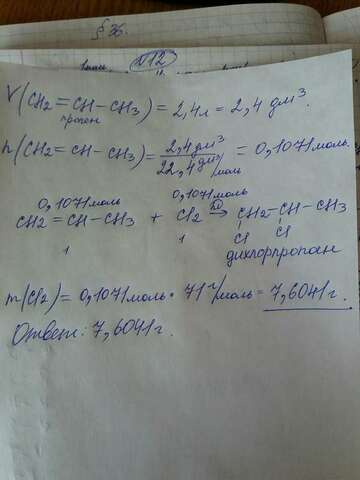 § 36.
N12
V(CH2=CH-CH3) = 2,4л = 2,4 дм³.
пропан
n(CH2=CH-CH3) = 2,4 дм³ / 22,4 дм³/моль = 0,1071 моль.
0,1071 моль 0,1071 моль
CH2=CH-CH3 + Cl2 → CH2-CH-CH3
1 1 Cl Cl
дихлорпропан
m(Cl2) = 0,1071 моль · 71 г/моль = 7,6041 г.
Ответ: 7,6041 г.